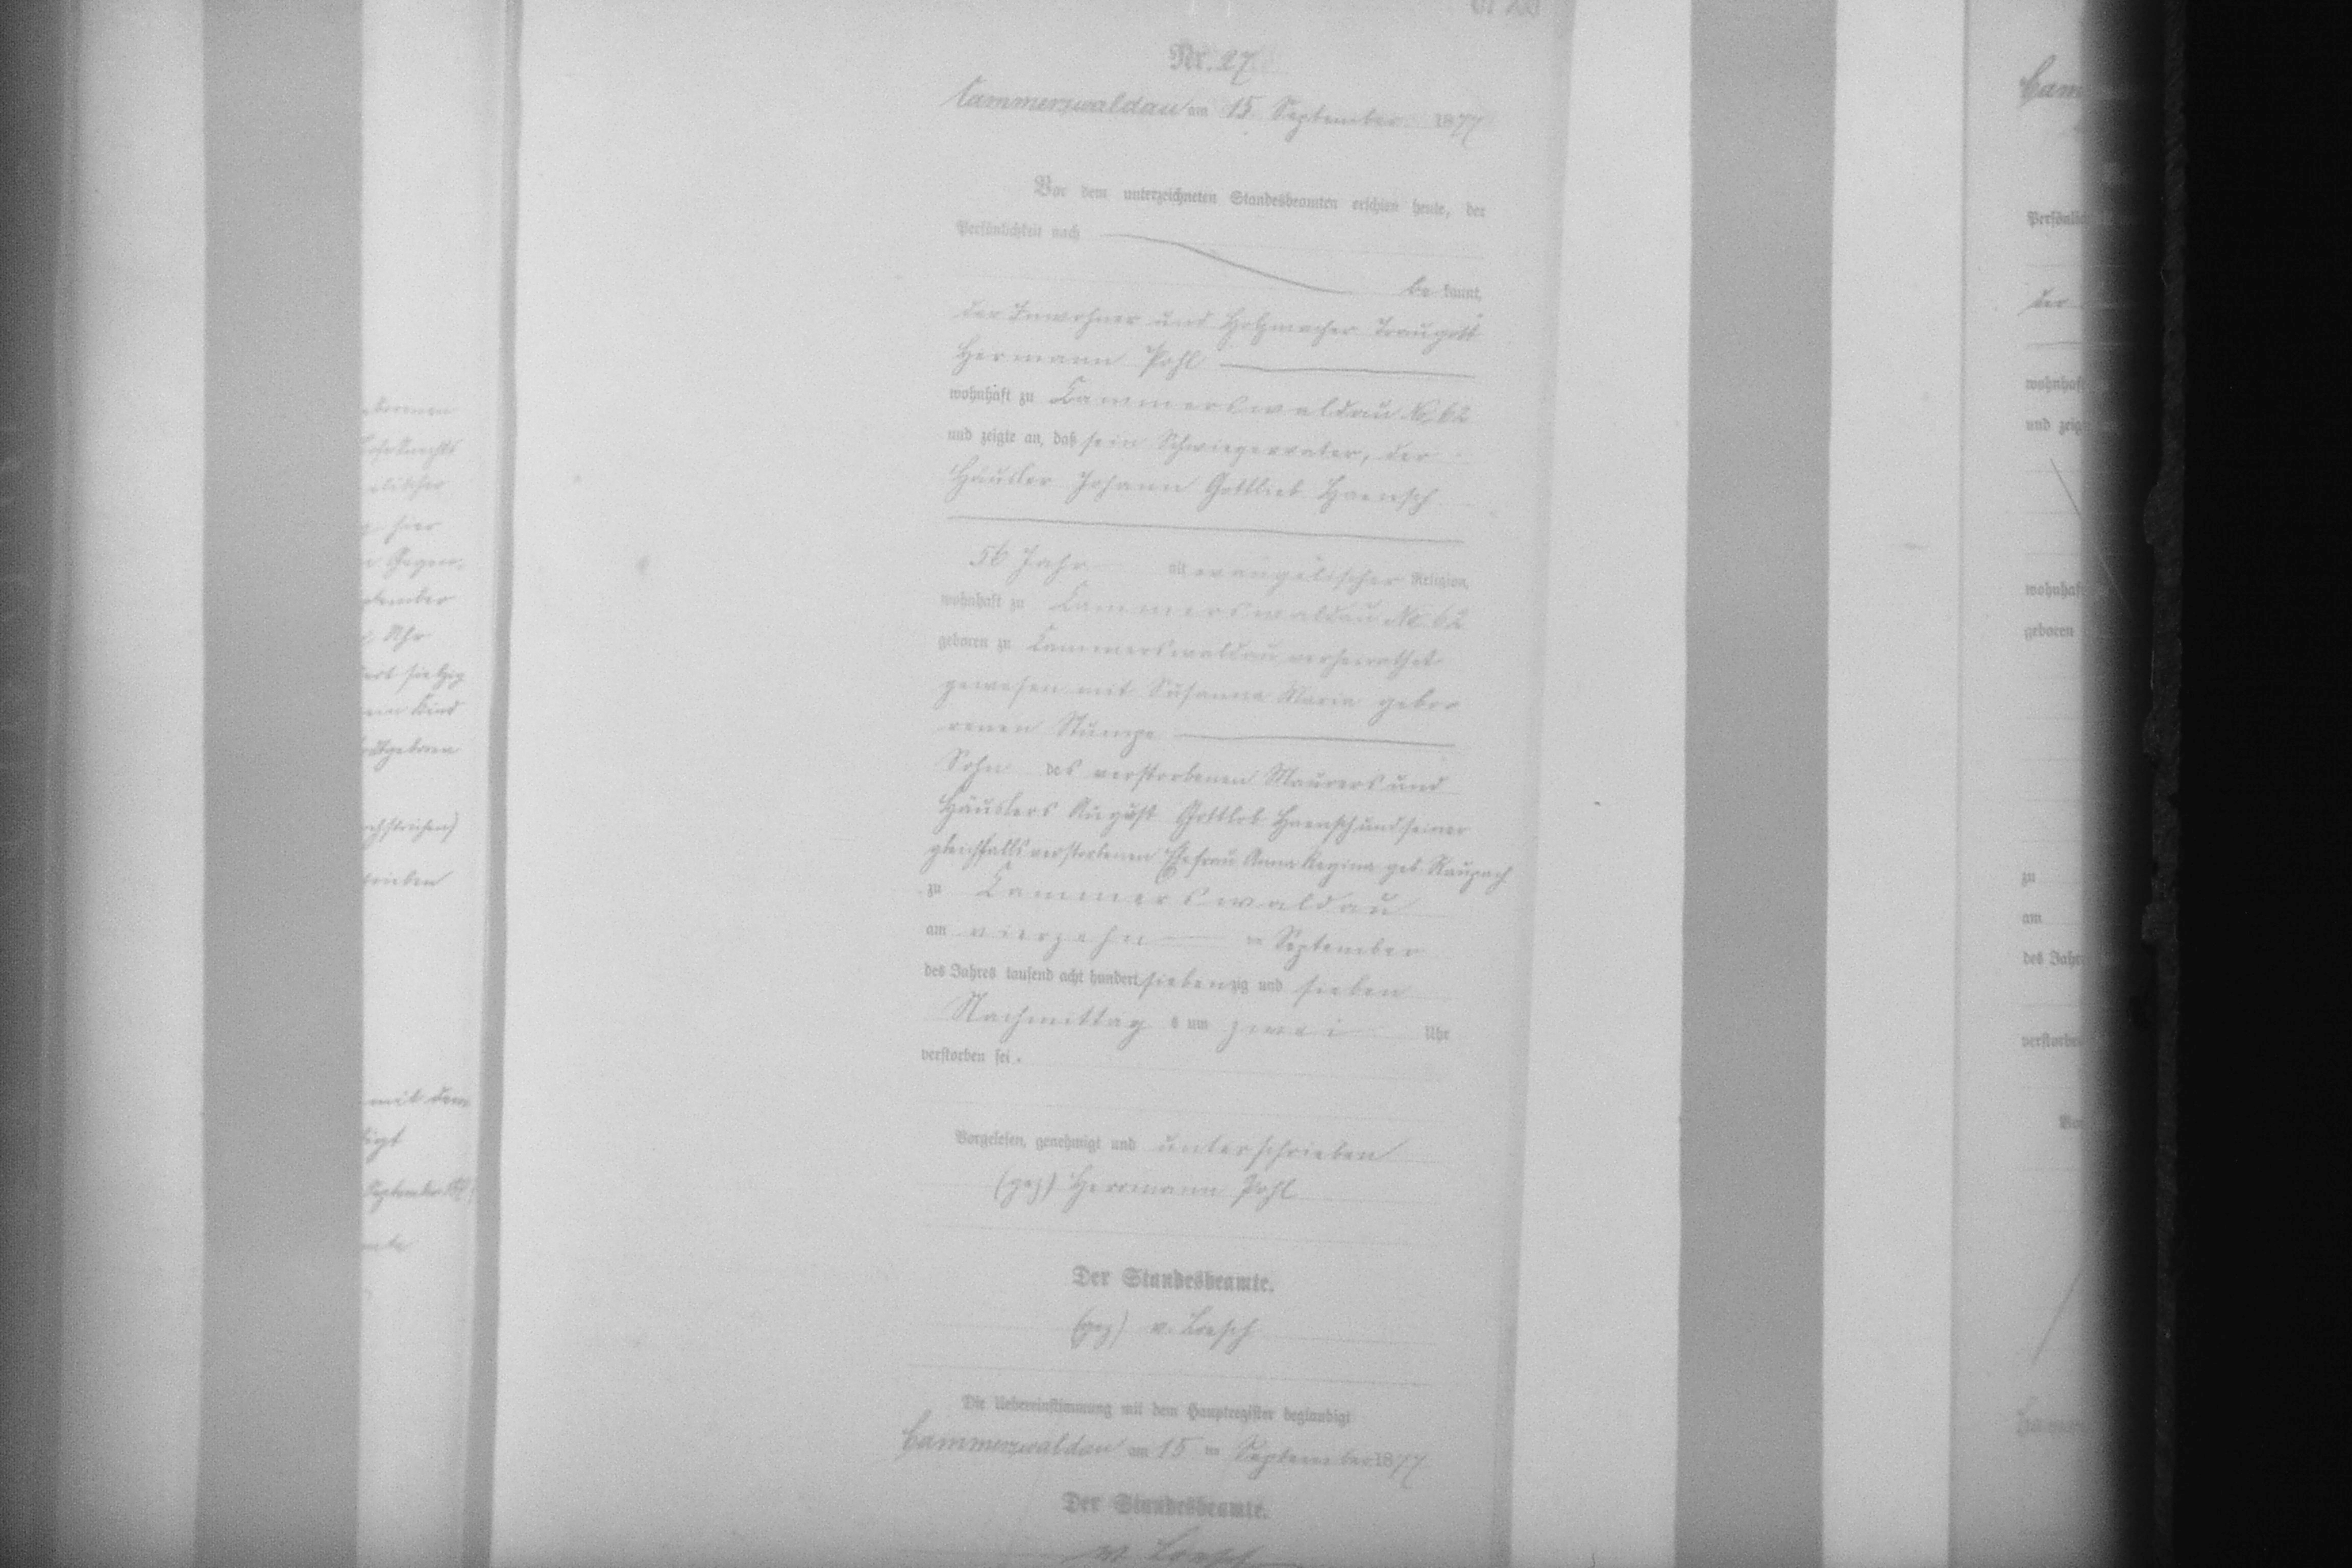 Nr. 27
Cammerswaldau am 15. September 1877
Vor dem unterzeichneten Standesbeamten erschien heute, der
Persönlichkeit nach
be kannt,
der Inwohner und Holzmacher Traugott
Hermann Pohl
wohnhaft zu Cammerswaldau No 62
und zeigte an, daß sein Schwiegervater, der
Häusler Johann Gottlieb Haensch
56 Jahr alt evangelischer Religion,
wohnhaft zu Cammerswaldau No 62
geboren zu Cammerswaldau, verheirathet
gewesen mit Susanna Maria gebor
renen Stumpe
Sohn des verstorbenen Maurers und
Häuslers August Gottlob Haensch und seiner
gleichfalls verstorbenen Ehefrau Anna Regina geb Raupach
zu Cammerswaldau
am vierzehn ten September
des Jahres tausend acht hundert siebenzig und sieben
Nachmittag s um zwei Uhr
verstorben sei.
Vorgelesen, genehmigt und unterschrieben
(gez) Herrmann Pohl
Der Standesbeamte.
(gez) v. Loesch
Die Uebereinstimmung mit dem Hauptregister beglaubigt
Cammerswaldau am 15 ten September 1877
Der Standesbeamte.
v. Loesch